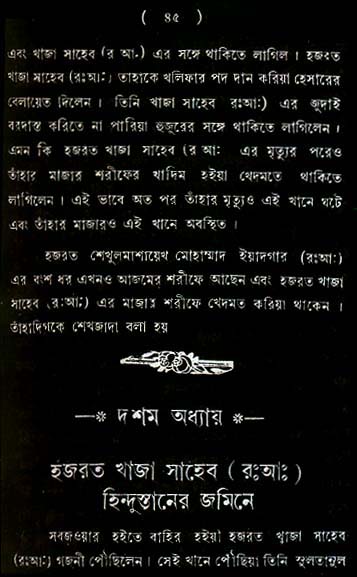 ( ৪৫ )
এবং খাজা সাহেব (র আ.) এর সঙ্গে থাকিতে লাগিল । হজরত
খাজা সাহেব (রঃআঃ) তাহাকে খলিফার পদ দান করিয়া হেসারের
বেলায়েত দিলেন । তিনি খাজা সাহেব রঃআঃ) এর জুদাই
বরদাস্ত করিতে না পারিয়া হুজুরের সঙ্গে থাকিতে লাগিলেন ।
এমন কি হজরত খাজা সাহেব (র আঃ এর মৃত্যুর পরেও
তাঁহার মাজার শরীফের খাদিম হইয়া খেদমতে থাকিতে
লাগিলেন । এই ভাবে অত পর তাঁহার মৃত্যুও এই খানে ঘটে
এবং তাঁহার মাজারও এই খানে অবস্থিত ।
হজরত শেখুলমাশায়েখ মোহাম্মাদ ইয়াদগার (রঃআঃ)
এর বংশ ধর এখনও আজমের শরীফে আছেন এবং হজরত খাজা
সাহেব (রঃআঃ) এর মাজার শরীফে খেদমত করিয়া থাকেন ।
তাঁহাদিগকে শেখজাদা বলা হয়
—* দশম অধ্যায় *—
হজরত খাজা সাহেব ( রঃআঃ )
হিন্দুস্তানের জমিনে
সবজওয়ার হইতে বাহির হইয়া হজরত খাজা সাহেব
(রঃআঃ) গজনী পৌছিলেন । সেই খানে পৌছিয়া তিনি সুলতানুল